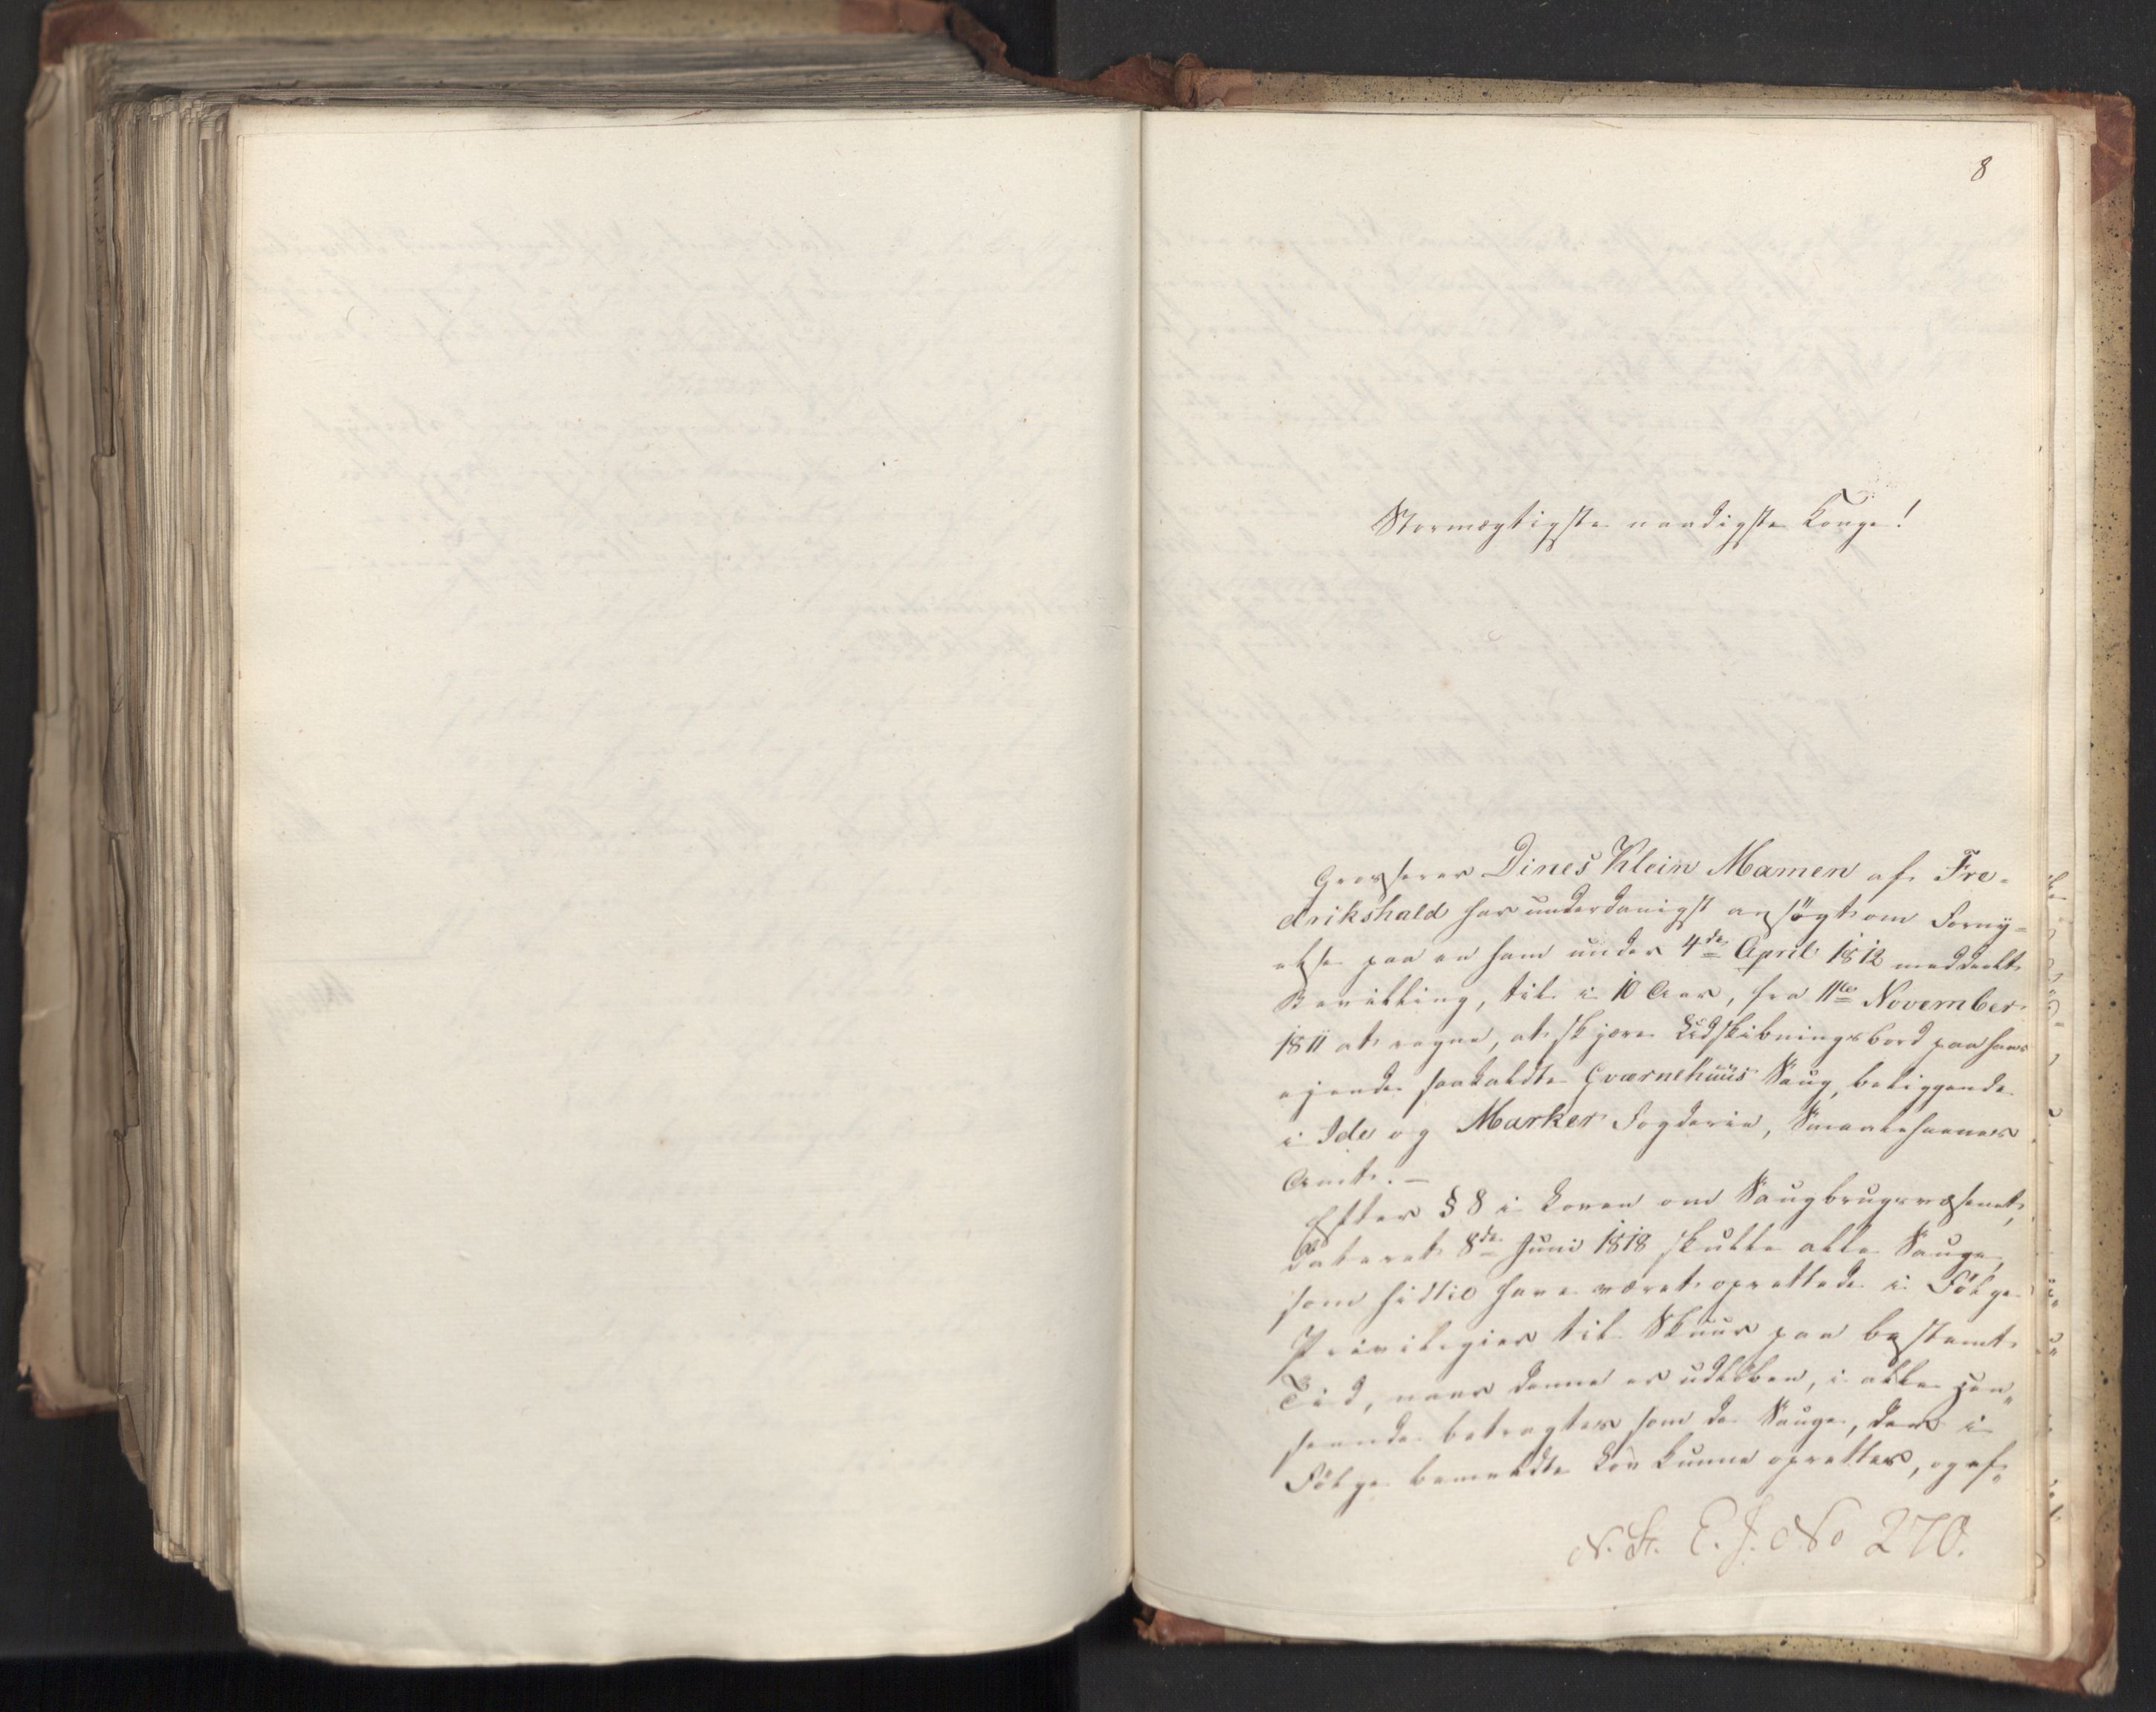 8
Stormægtigste naadigste Konge!
Grosserer Dines Klein Mamen af Fre-
drikshald har underdanigst ansögt om Forny-
else paa en ham under 4de April 1812 meddeelt
Bevilling, til i 10 Aar, fra 11te November
1811 at regne, at skjære Udskibningsbord paa hans
ejende saakaldte Qværnehuus Saug, beliggende
i Ide og Marker Fogderie, Smaalehnenes
Amt. —
Efter § 8 i Loven om Saugbrugsvæsenet,
dateret 8de Juni 1818 skulle alle Sauge,
som hidtil have været oprettede i Fölge
Privilegier til Skuur paa bestemt
Tid, naar denne er udløben, i alle Hen„
seende betragtes som de Sauge, der i
Fölge bemeldte Lov kunne oprettes, og af„
N. St. E. J. No 270.